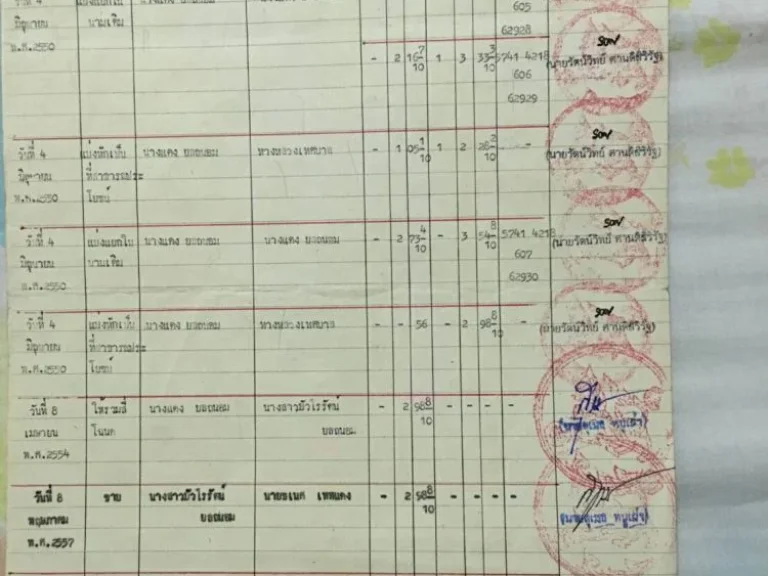 วันที่ 4 แบ่งแยกใน 605
มิถุนายน นามเดิม 62928
พ.ศ.2550
- 2 16 7/10 1 3 33 3/10 5741 4218 (นายรัตน์วิทย์
606
62929
วันที่ 4 แบ่งหักเป็น นางแดง ยอดนอม ทางหลวงเทศบาล - 1 05 1/10 1 2 28 2/10 - - (นายรัตน์วิทย์
มิถุนายน ที่สาธารณประ
พ.ศ.2550 โยชน์
วันที่ 4 แบ่งแยกใน นางแดง ยอดนอม นางแดง ยอดนอม - 2 73 4/10 - 3 54 8/10 5741 4218 (นายรัตน์วิทย์
มิถุนายน นามเดิม 607
พ.ศ.2550 62930
วันที่ 4 แบ่งหักเป็น นางแดง ยอดนอม ทางหลวงเทศบาล - - 56 - 2 98 8/10 - (นายรัตน์วิทย์
มิถุนายน ที่สาธารณประ
พ.ศ.2550 โยชน์
วันที่ 8 ให้รวมสี่ นางแดง ยอดนอม นางสาวมัวไรรัตน์ - 2 98 8/10 - - - -
เมษายน โฉนด ยอดนอม
พ.ศ.2554
วันที่ 8 ขาย นางสาวมัวไรรัตน์ นายธเนศ เทศแดง - 2 98 8/10 - - - -
พฤษภาคม ยอดนอม
พ.ศ.2557